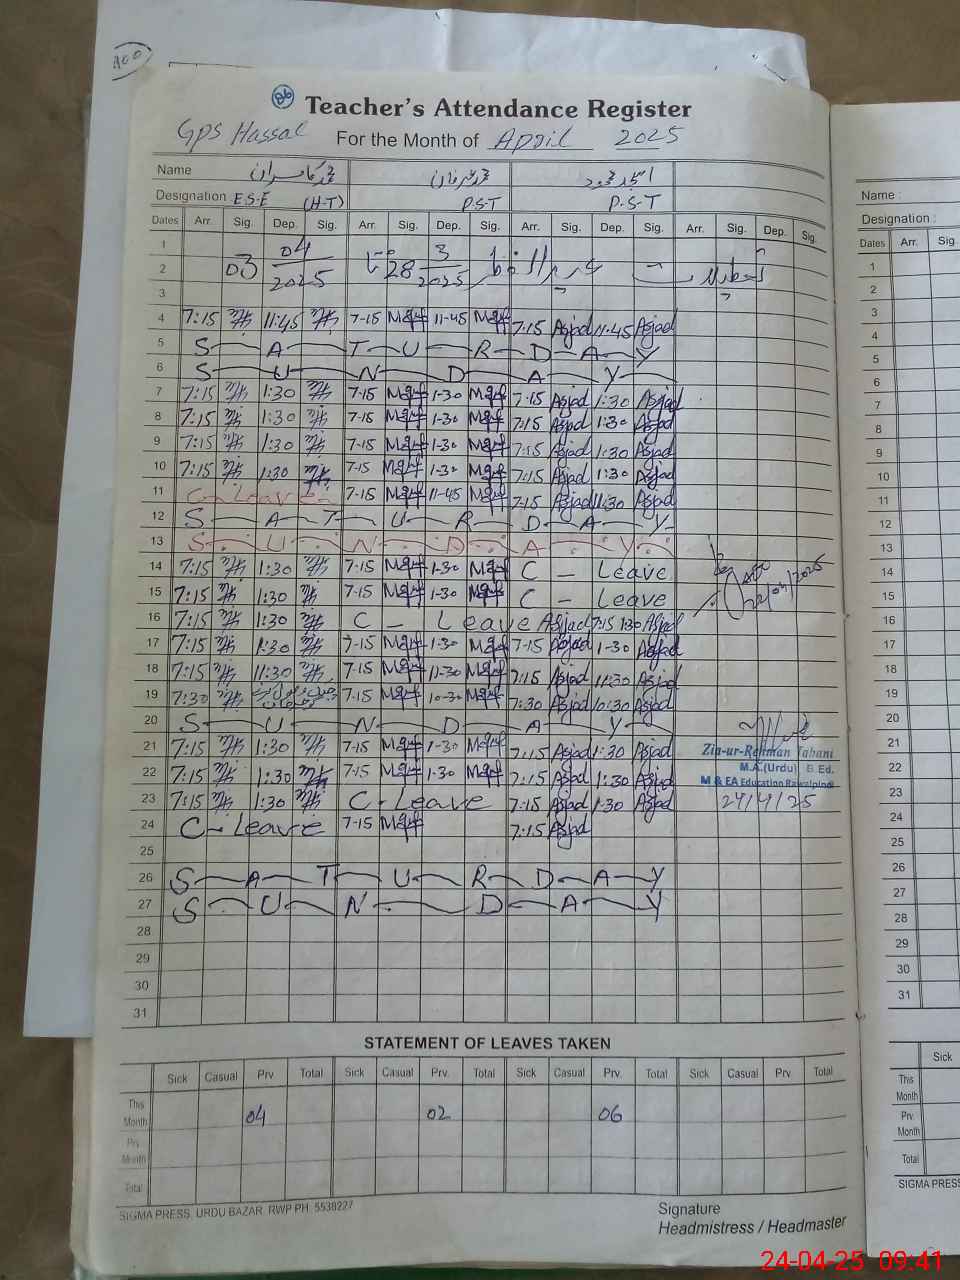 86
Teacher's Attendance Register
GPS Hassal For the Month of April 2025
Name محمد کامران محمد عرفان امجد محمود
Designation E.S.E (H-T) P.S-T P.S-T
Dates Arr. Sig. Dep. Sig. Arr. Sig. Dep. Sig. Arr. Sig. Dep. Sig. Arr. Sig. Dep. Sig.
1
2 03 04/2025 تا 28 3/2025 عید الفطر تعطیلات
3
4 7:15 11:45 7-15 11-45 7:15 Asjad 11:45 Asjad
5 S A T U R D A Y
6 S U N D A Y
7 7:15 1:30 7-15 1-30 7:15 Asjad 1:30 Asjad
8 7:15 1:30 7-15 1-30 7:15 Asjad 1:30 Asjad
9 7:15 1:30 7-15 1-30 7:15 Asjad 1:30 Asjad
10 7:15 1:30 7-15 1-30 7:15 Asjad 1:30 Asjad
11 C-Leave 7-15 11-45 7:15 Asjad 11:30 Asjad
12 S A T U R D A Y
13 S U N D A Y
14 7:15 1:30 7-15 1-30 C - Leave
15 7:15 1:30 7-15 1-30 C - Leave
16 7:15 1:30 C - Leave Asjad 7:15 1:30 Asjad
17 7:15 1:30 7-15 1-30 7-15 Asjad 1-30 Asjad
18 7:15 11:30 7-15 11-30 7:15 Asjad 11:30 Asjad
19 7:30 7-15 10-30 7:30 Asjad 10:30 Asjad
20 S U N D A Y
21 7:15 1:30 7-15 1-30 7:15 Asjad 1:30 Asjad
Zia-ur-Rehman Tabani
22 7:15 1:30 7-15 1-30 7:15 Asjad 1:30 Asjad
M.A.(Urdu) B.Ed.
M & EA Education Rawalpindi
23 7:15 1:30 C-Leave 7:15 Asjad 1-30 Asjad 24/4/25
24 C-Leave 7-15 7:15 Asjad
25
26 S A T U R D A Y
27 S U N D A Y
28
29
30
31
STATEMENT OF LEAVES TAKEN
Sick Casual Prv. Total Sick Casual Prv. Total Sick Casual Prv. Total Sick Casual Prv. Total
This Month 04 02 06
Prv. Month
Total
SIGMA PRESS, URDU BAZAR, RWP PH: 5539227
Signature
Headmistress / Headmaster
Name :
Designation :
Dates Arr. Sig.
1
2
3
4
5
6
7
8
9
10
11
12
13
14
15
16
17
18
19
20
21
22
23
24
25
26
27
28
29
30
31
Sick
This Month
Prv. Month
Total
SIGMA PRESS
24-04-25 09:41